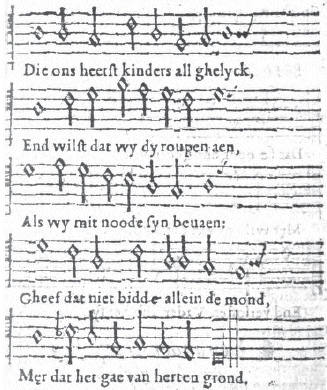 Die ons heerſt kinders all ghelyck,
End wilſt dat wy dy roupen aen,
Als wy mit noode ſyn beuaen:
Gheef dat niet bidde allein de mond,
Mer dat het gae van herten grond.